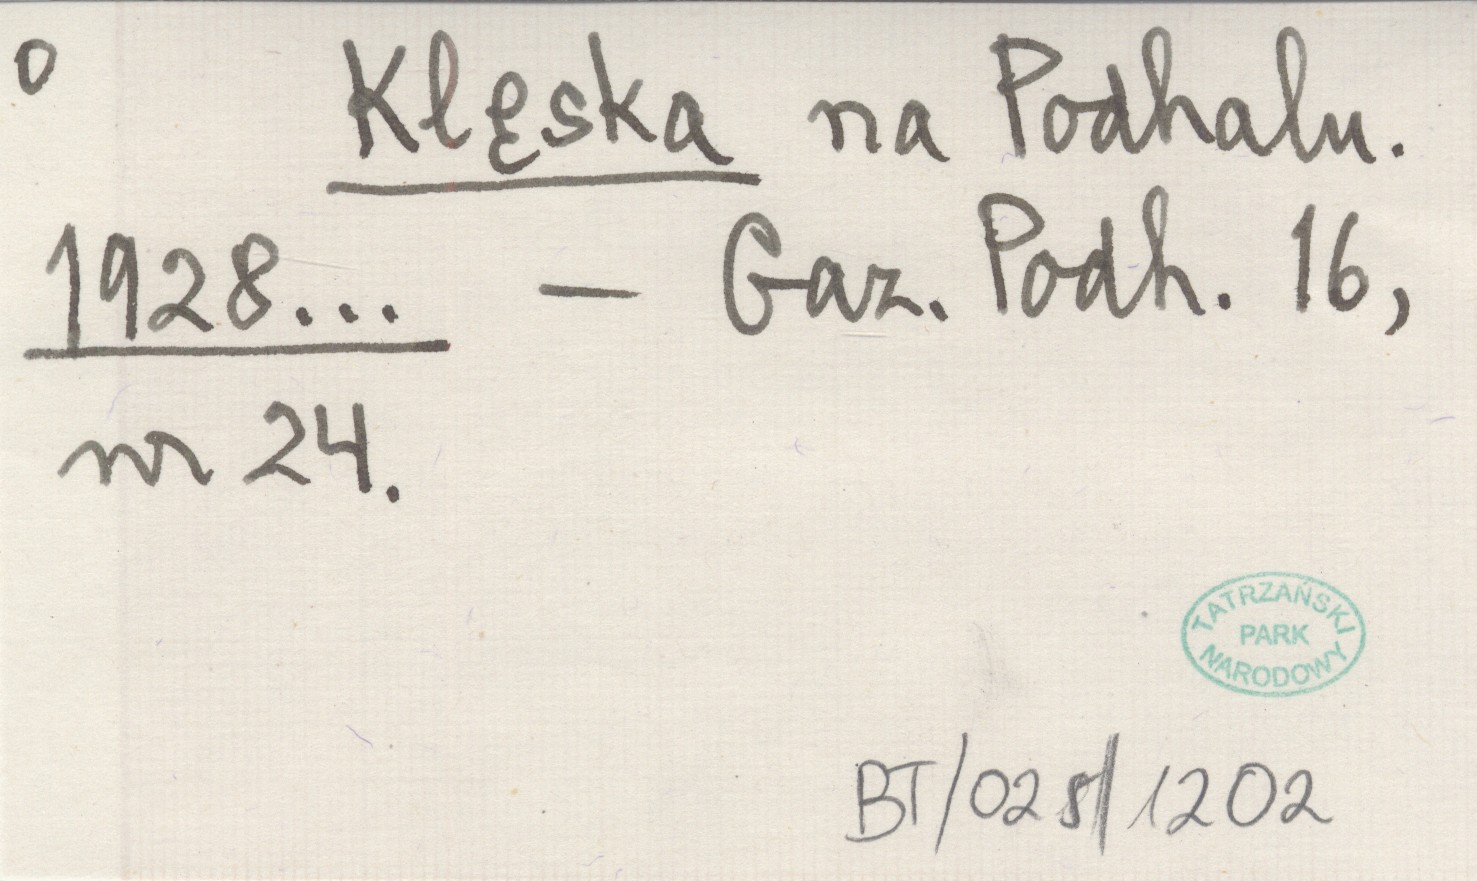 o Klęska na Podhalu.
1928... – Gaz. Podh. 16,
nr 24.
TATRZAŃSKI
PARK
NARODOWY
BT/028/1202